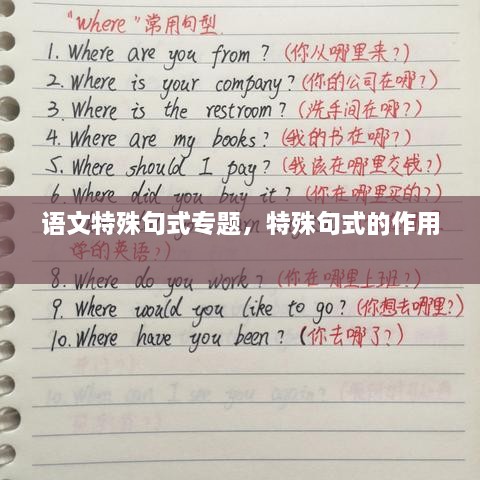 "where"常用句型
1. Where are you from? (你从哪里来?)
2. Where is your company? (你的公司在哪?)
3. Where is the restroom? (洗手间在哪?)
4. Where are my books? (我的书在哪?)
5. Where should I pay? (我该在哪里交钱?)
6. Where did you buy it? (你在哪里买的?)
语文特殊句式专题，特殊句式的作用
学的英语?)
8. Where do you work? (你在哪里上班?)
9. Where would you like to go? (你想去哪里?)
10. Where have you been? (你去哪了?)